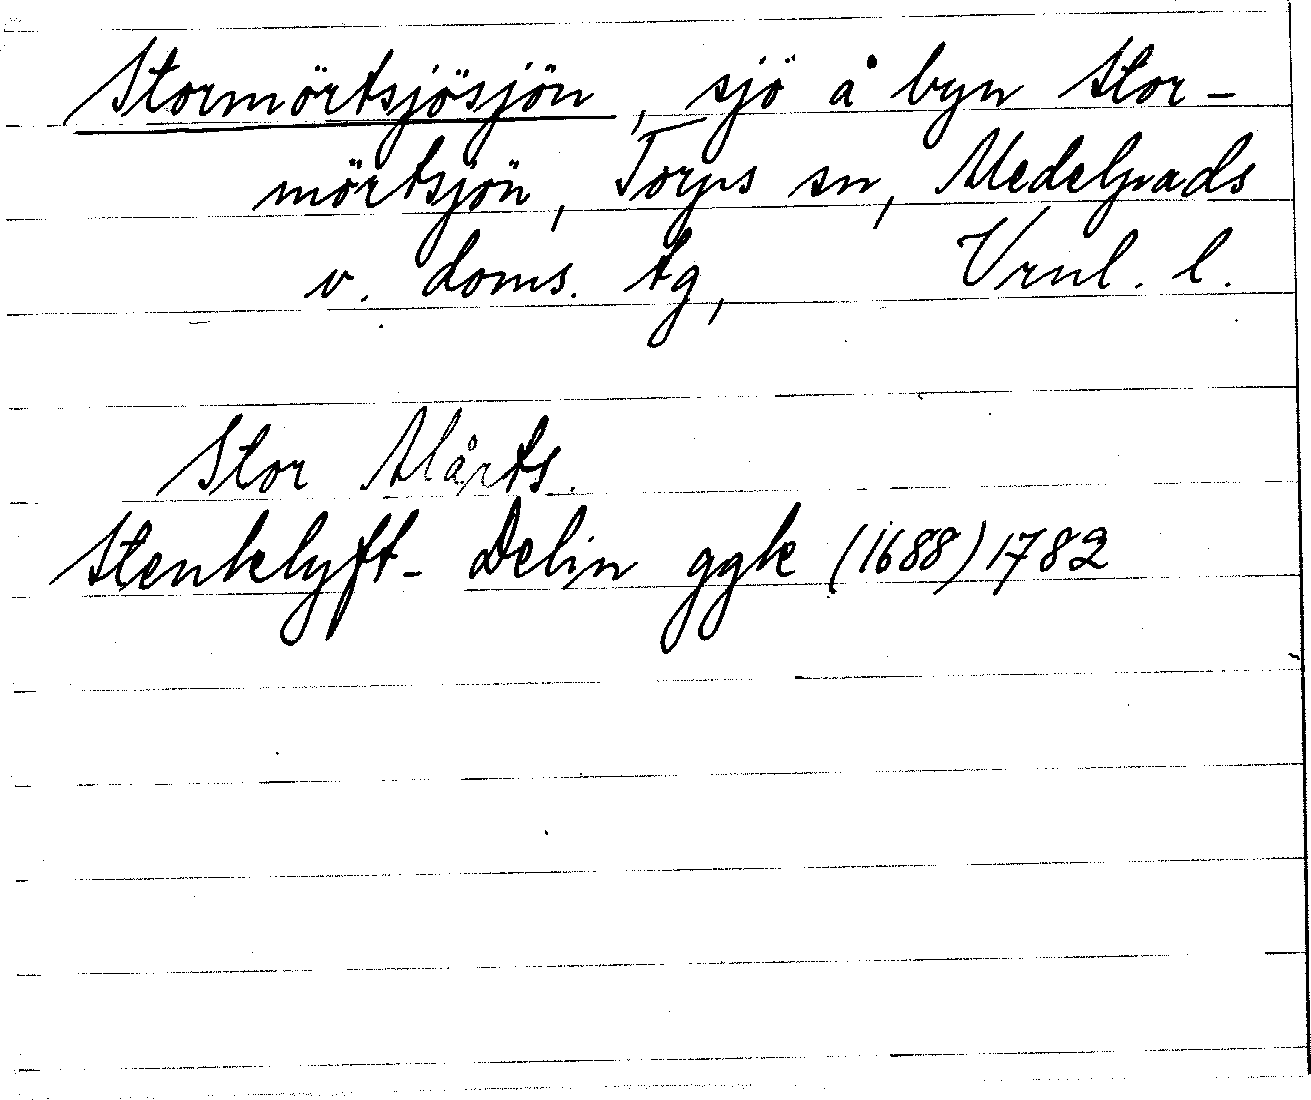 Stormörtsjösjön, sjö å byn Stor-
mörtsjön, Torps sn, Medelpads
v. doms. tg, Vrnl. l.
Stor Mårts.
Stenklyft- Delin ggk (1688) 1782